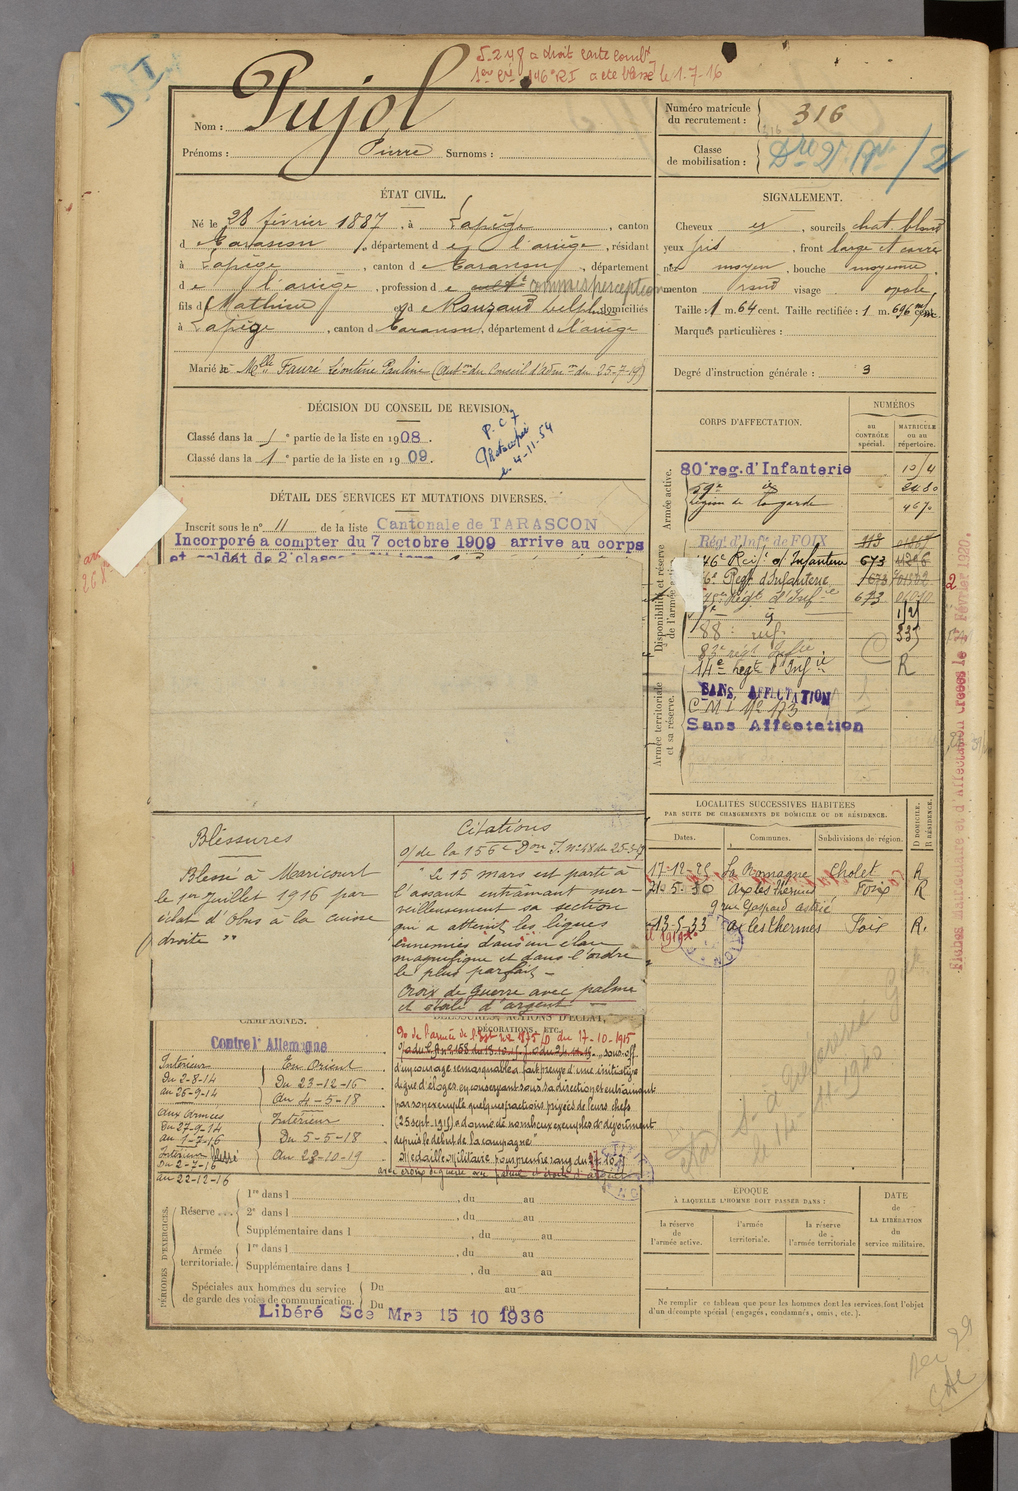 5-248 a droit carte combt
1er Cl 146e RI a été blessé le 1-7-16
D I
Nom : Pujol
Prénoms : Pierre Surnoms :
Numéro matricule
du recrutement : 316
Classe
de mobilisation :
ÉTAT CIVIL.
Né le 28 février 1887, à Lapège, canton
d e Tarascon, département d e l'ariège, résidant
à Lapège, canton d e Tarascon, département
d e l'ariège, profession d e commis perception
fils d Mathieu et d e Rouzaud Delph. domiciliés
à Lapège, canton d Tarascon, département d e l'ariège
Marié à Melle Fauré Léontine Pauline (auton du Conseil d'admon du 25-7-19)
SIGNALEMENT.
Cheveux et, sourcils chat. blond
yeux gris, front large et carré
nez moyen, bouche moyenne
menton rond visage ovale
Taille : 1 m. 64 cent. Taille rectifiée : 1 m. 646
Marques particulières :
Degré d'instruction générale : 3
DÉCISION DU CONSEIL DE REVISION
Classé dans la 1e partie de la liste en 1908.
Classé dans la 1e partie de la liste en 1909.
P. C 7
Photocopie
le 4-11-54
DÉTAIL DES SERVICES ET MUTATIONS DIVERSES.
Inscrit sous le n° 11 de la liste Cantonale de TARASCON
Incorporé a compter du 7 octobre 1909 arrive au corps
et soldat de 2e classe
CORPS D'AFFECTATION.
NUMÉROS
au CONTRÔLE spécial.
MATRICULE ou au répertoire.
Armée active.
80e reg. d'Infanterie
59e
2480
Légion de la garde
Disponibilité et réserve de l'armée active
Régt d'Infie de FOIX
146e Regt d'Infanterie 673 11296
Regt d'Infanterie
673
188e inf.
83e régt Infie
14e Regt d'Infie R
Armée territoriale et sa réserve.
SANS AFFECTATION
C M I No 173
Sans Affectation
Fiches matriculaire et d'affectation créées le 1er Février 1920.
Blessures
Blessé à Maricourt
le 1er Juillet 1916 par
éclat d'Obus à la cuisse
droite "
Citations
O/ de la 156e Don I. No 48 du 25-3-17
"Le 15 mars est parti à
l'assaut entraînant mer-
veilleusement sa section
qui a atteint les lignes
ennemies dans un élan
magnifique et dans l'ordre
le plus parfait -
Croix de Guerre avec palme
et étoile d'argent -
LOCALITÉS SUCCESSIVES HABITÉES
PAR SUITE DE CHANGEMENTS DE DOMICILE OU DE RÉSIDENCE.
Dates. Communes. Subdivisions de région. D DOMICILE. R RÉSIDENCE.
17-12-25 La Romagne Cholet R
21-5-30 Ax les thermes Foix R
9 rue Gaspard astrié
13-5-33 ax les thermes Foix R.
CAMPAGNES.
Contre l'Allemagne
Intérieur
Du 2-8-14
au 26-9-14
Aux Armées
Du 27-9-14
au 1-7-16
Intérieur blessé
Du 2-7-16
au 22-12-16
En Orient
Du 23-12-16
au 4-5-18
Intérieur
Du 5-5-18
au 23-10-19
BLESSURES, ACTIONS D'ÉCLAT,
DÉCORATIONS, ETC.
du 17-10-1915
sous-off.
d'un courage remarquable a fait preuve d'une initiative
digne d'éloges, en conservant sous sa direction et entrainant
par son exemple quelques fractions privées de leurs chefs
(25 sept. 1915) a donné de nombreux exemples de dévouement
depuis le début de la campagne"
Médaille Militaire pour prendre rang du
avec croix de guerre avec palme et étoile d'argent
état S. A.
le 14-11-1940
PÉRIODES D'EXERCICES.
Réserve
1re dans l , du au
2e dans l , du au
Supplémentaire dans l , du au
Armée territoriale.
1re dans l , du au
Supplémentaire dans l , du au
Spéciales aux hommes du service
de garde des voies de communication.
Du au
Du au
Libéré Sce Mre 15 10 1936
ÉPOQUE
À LAQUELLE L'HOMME DOIT PASSER DANS :
la réserve de l'armée active.
l'armée territoriale.
la réserve de l'armée territoriale
DATE
de
LA LIBÉRATION
du
service militaire.
Ne remplir ce tableau que pour les hommes dont les services font l'objet
d'un décompte spécial (engagés, condamnés, omis, etc.).